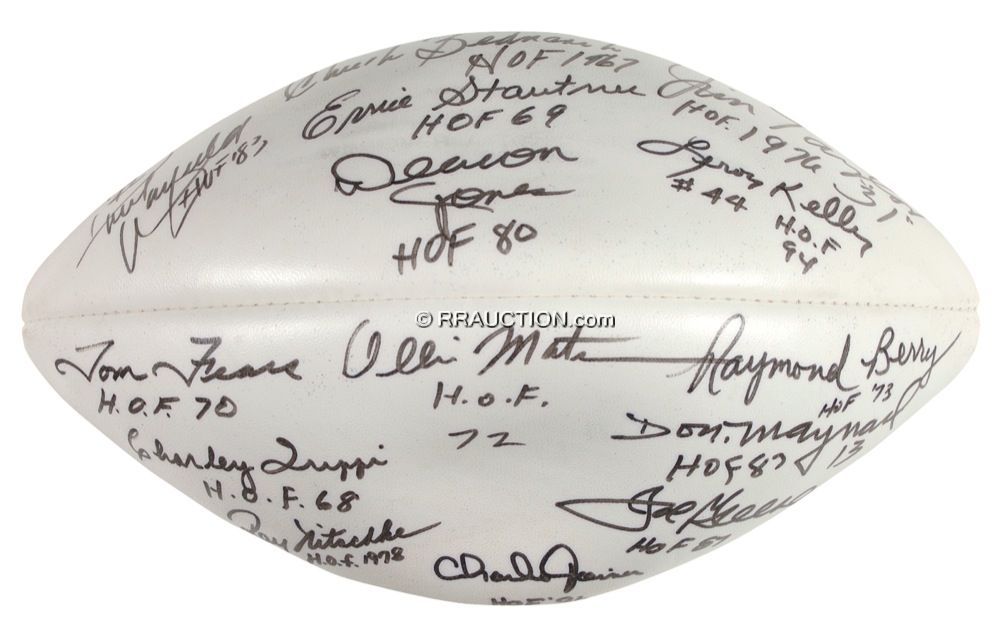 Chuck Bednarik
HOF 1967
Ernie Stautner
HOF 69
Jim
HOF. 1976
HOF '83
Deacon
Jones
HOF 80
Leroy Kelly
#44
H.O.F
94
© RRAUCTION.com
Tom Fears
H.O.F. 70
Ollie Matson
H.O.F.
72
Raymond Berry
HOF '73
Don Maynard
13
HOF 87
Charley Trippi
H.O.F. 68
Joe Greene
HOF 87
Ray Nitschke
H.O.F. 1978
Charlie Joiner